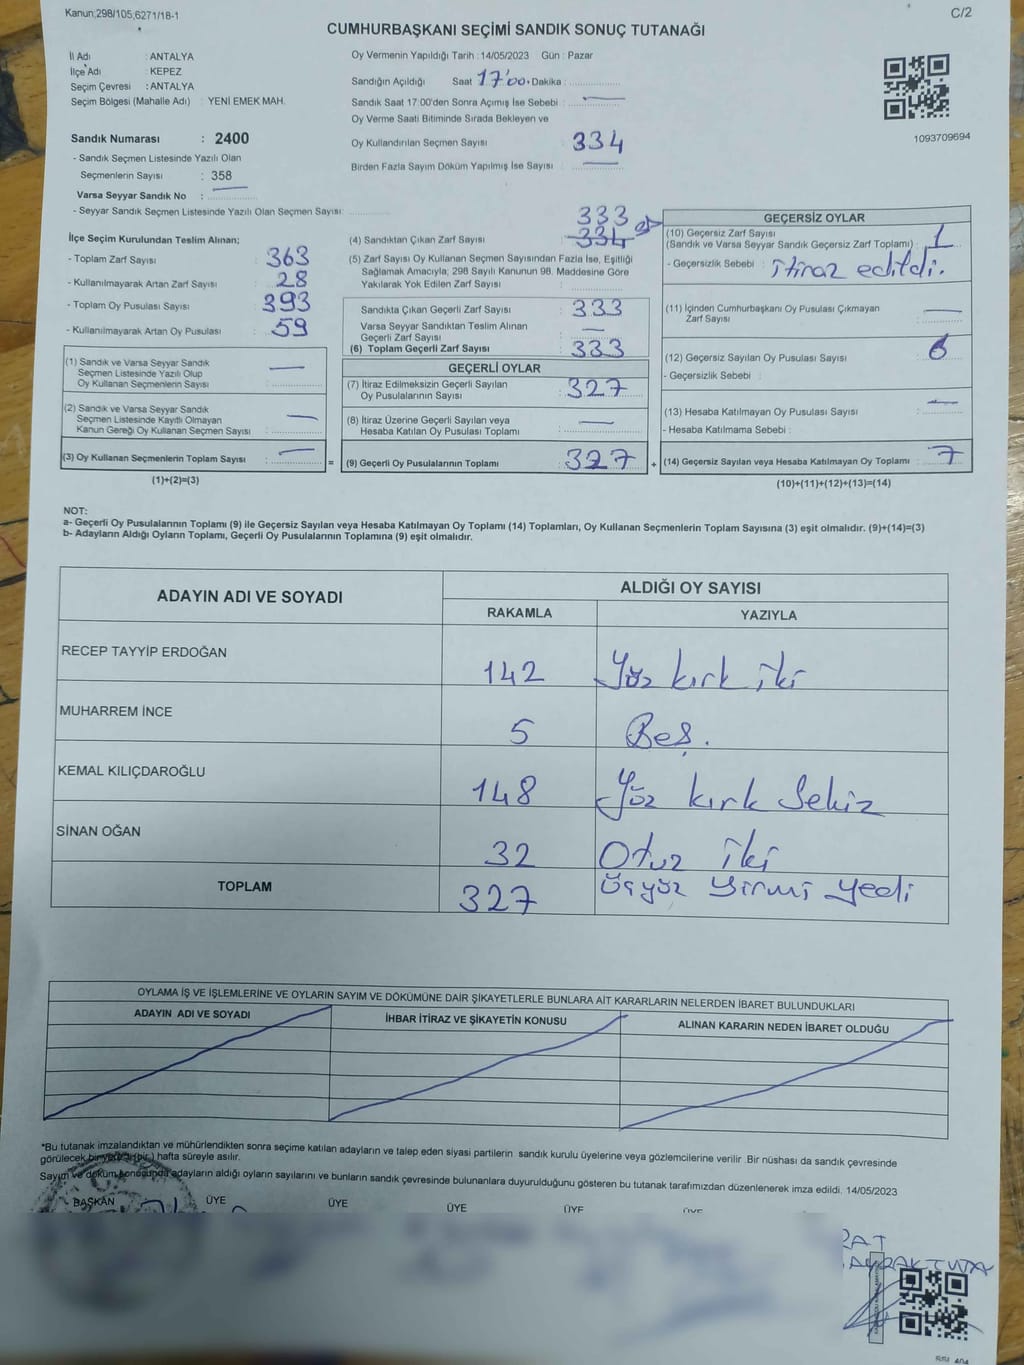 Kanun;298/105,6271/18-1
C/2
CUMHURBAŞKANI SEÇİMİ SANDIK SONUÇ TUTANAĞI
İl Adı : ANTALYA
İlçe Adı : KEPEZ
Seçim Çevresi : ANTALYA
Seçim Bölgesi (Mahalle Adı) : YENİ EMEK MAH.
Sandık Numarası : 2400
- Sandık Seçmen Listesinde Yazılı Olan
Seçmenlerin Sayısı : 358
Varsa Seyyar Sandık No :
- Seyyar Sandık Seçmen Listesinde Yazılı Olan Seçmen Sayısı:
Oy Vermenin Yapıldığı Tarih : 14/05/2023 Gün : Pazar
Sandığın Açıldığı Saat 17:00 Dakika :
Sandık Saat 17:00'den Sonra Açımış İse Sebebi :
Oy Verme Saati Bitiminde Sırada Bekleyen ve
Oy Kullandırılan Seçmen Sayısı : 334
Birden Fazla Sayım Döküm Yapılmış İse Sayısı :
1093709694
İlçe Seçim Kurulundan Teslim Alınan;
- Toplam Zarf Sayısı : 363
- Kullanılmayarak Artan Zarf Sayısı : 28
- Toplam Oy Pusulası Sayısı : 393
- Kullanılmayarak Artan Oy Pusulası : 59
(1) Sandık ve Varsa Seyyar Sandık
Seçmen Listesinde Yazılı Olup
Oy Kullanan Seçmenlerin Sayısı :
(2) Sandık ve Varsa Seyyar Sandık
Seçmen Listesinde Kayıtlı Olmayan
Kanun Gereği Oy Kullanan Seçmen Sayısı :
(3) Oy Kullanan Seçmenlerin Toplam Sayısı :
(1)+(2)=(3)
=
333
(4) Sandıktan Çıkan Zarf Sayısı : 334
(5) Zarf Sayısı Oy Kullanan Seçmen Sayısından Fazla İse, Eşitliği
Sağlamak Amacıyla; 298 Sayılı Kanunun 98. Maddesine Göre
Yakılarak Yok Edilen Zarf Sayısı :
Sandıkta Çıkan Geçerli Zarf Sayısı : 333
Varsa Seyyar Sandıktan Teslim Alınan
Geçerli Zarf Sayısı :
(6) Toplam Geçerli Zarf Sayısı : 333
GEÇERLİ OYLAR
(7) İtiraz Edilmeksizin Geçerli Sayılan
Oy Pusulalarının Sayısı : 327
(8) İtiraz Üzerine Geçerli Sayılan veya
Hesaba Katılan Oy Pusulası Toplamı :
(9) Geçerli Oy Pusulalarının Toplamı : 327
+
GEÇERSİZ OYLAR
(10) Geçersiz Zarf Sayısı
(Sandık ve Varsa Seyyar Sandık Geçersiz Zarf Toplamı) : 1
- Geçersizlik Sebebi : itiraz edildi.
(11) İçinden Cumhurbaşkanı Oy Pusulası Çıkmayan
Zarf Sayısı :
(12) Geçersiz Sayılan Oy Pusulası Sayısı : 6
- Geçersizlik Sebebi :
(13) Hesaba Katılmayan Oy Pusulası Sayısı :
- Hesaba Katılmama Sebebi :
(14) Geçersiz Sayılan veya Hesaba Katılmayan Oy Toplamı : 7
(10)+(11)+(12)+(13)=(14)
NOT:
a- Geçerli Oy Pusulalarının Toplamı (9) ile Geçersiz Sayılan veya Hesaba Katılmayan Oy Toplamı (14) Toplamları, Oy Kullanan Seçmenlerin Toplam Sayısına (3) eşit olmalıdır. (9)+(14)=(3)
b- Adayların Aldığı Oyların Toplamı, Geçerli Oy Pusulalarının Toplamına (9) eşit olmalıdır.
ADAYIN ADI VE SOYADI
ALDIĞI OY SAYISI
RAKAMLA YAZIYLA
RECEP TAYYİP ERDOĞAN 142 Yüz kırk iki
MUHARREM İNCE 5 Beş.
KEMAL KILIÇDAROĞLU 148 Yüz kırk Sekiz
SİNAN OĞAN 32 Otuz iki
TOPLAM 327 Üçyüz Yirmi Yedi
OYLAMA İŞ VE İŞLEMLERİNE VE OYLARIN SAYIM VE DÖKÜMÜNE DAİR ŞİKAYETLERLE BUNLARA AİT KARARLARIN NELERDEN İBARET BULUNDUKLARI
ADAYIN ADI VE SOYADI
İHBAR İTİRAZ VE ŞİKAYETİN KONUSU
ALINAN KARARIN NEDEN İBARET OLDUĞU
*Bu tutanak imzalandıktan ve mühürlendikten sonra seçime katılan adayların ve talep eden siyasi partilerin sandık kurulu üyelerine veya gözlemcilerine verilir .Bir nüshası da sandık çevresinde
görülecek bir yere (bir ) hafta süreyle asılır.
Sayım ve döküm sonucunda adayların aldığı oyların sayılarını ve bunların sandık çevresinde bulunanlara duyurulduğunu gösteren bu tutanak tarafımızdan düzenlenerek imza edildi. 14/05/2023
BAŞKAN ÜYE ÜYE ÜYE ÜYE ÜYE